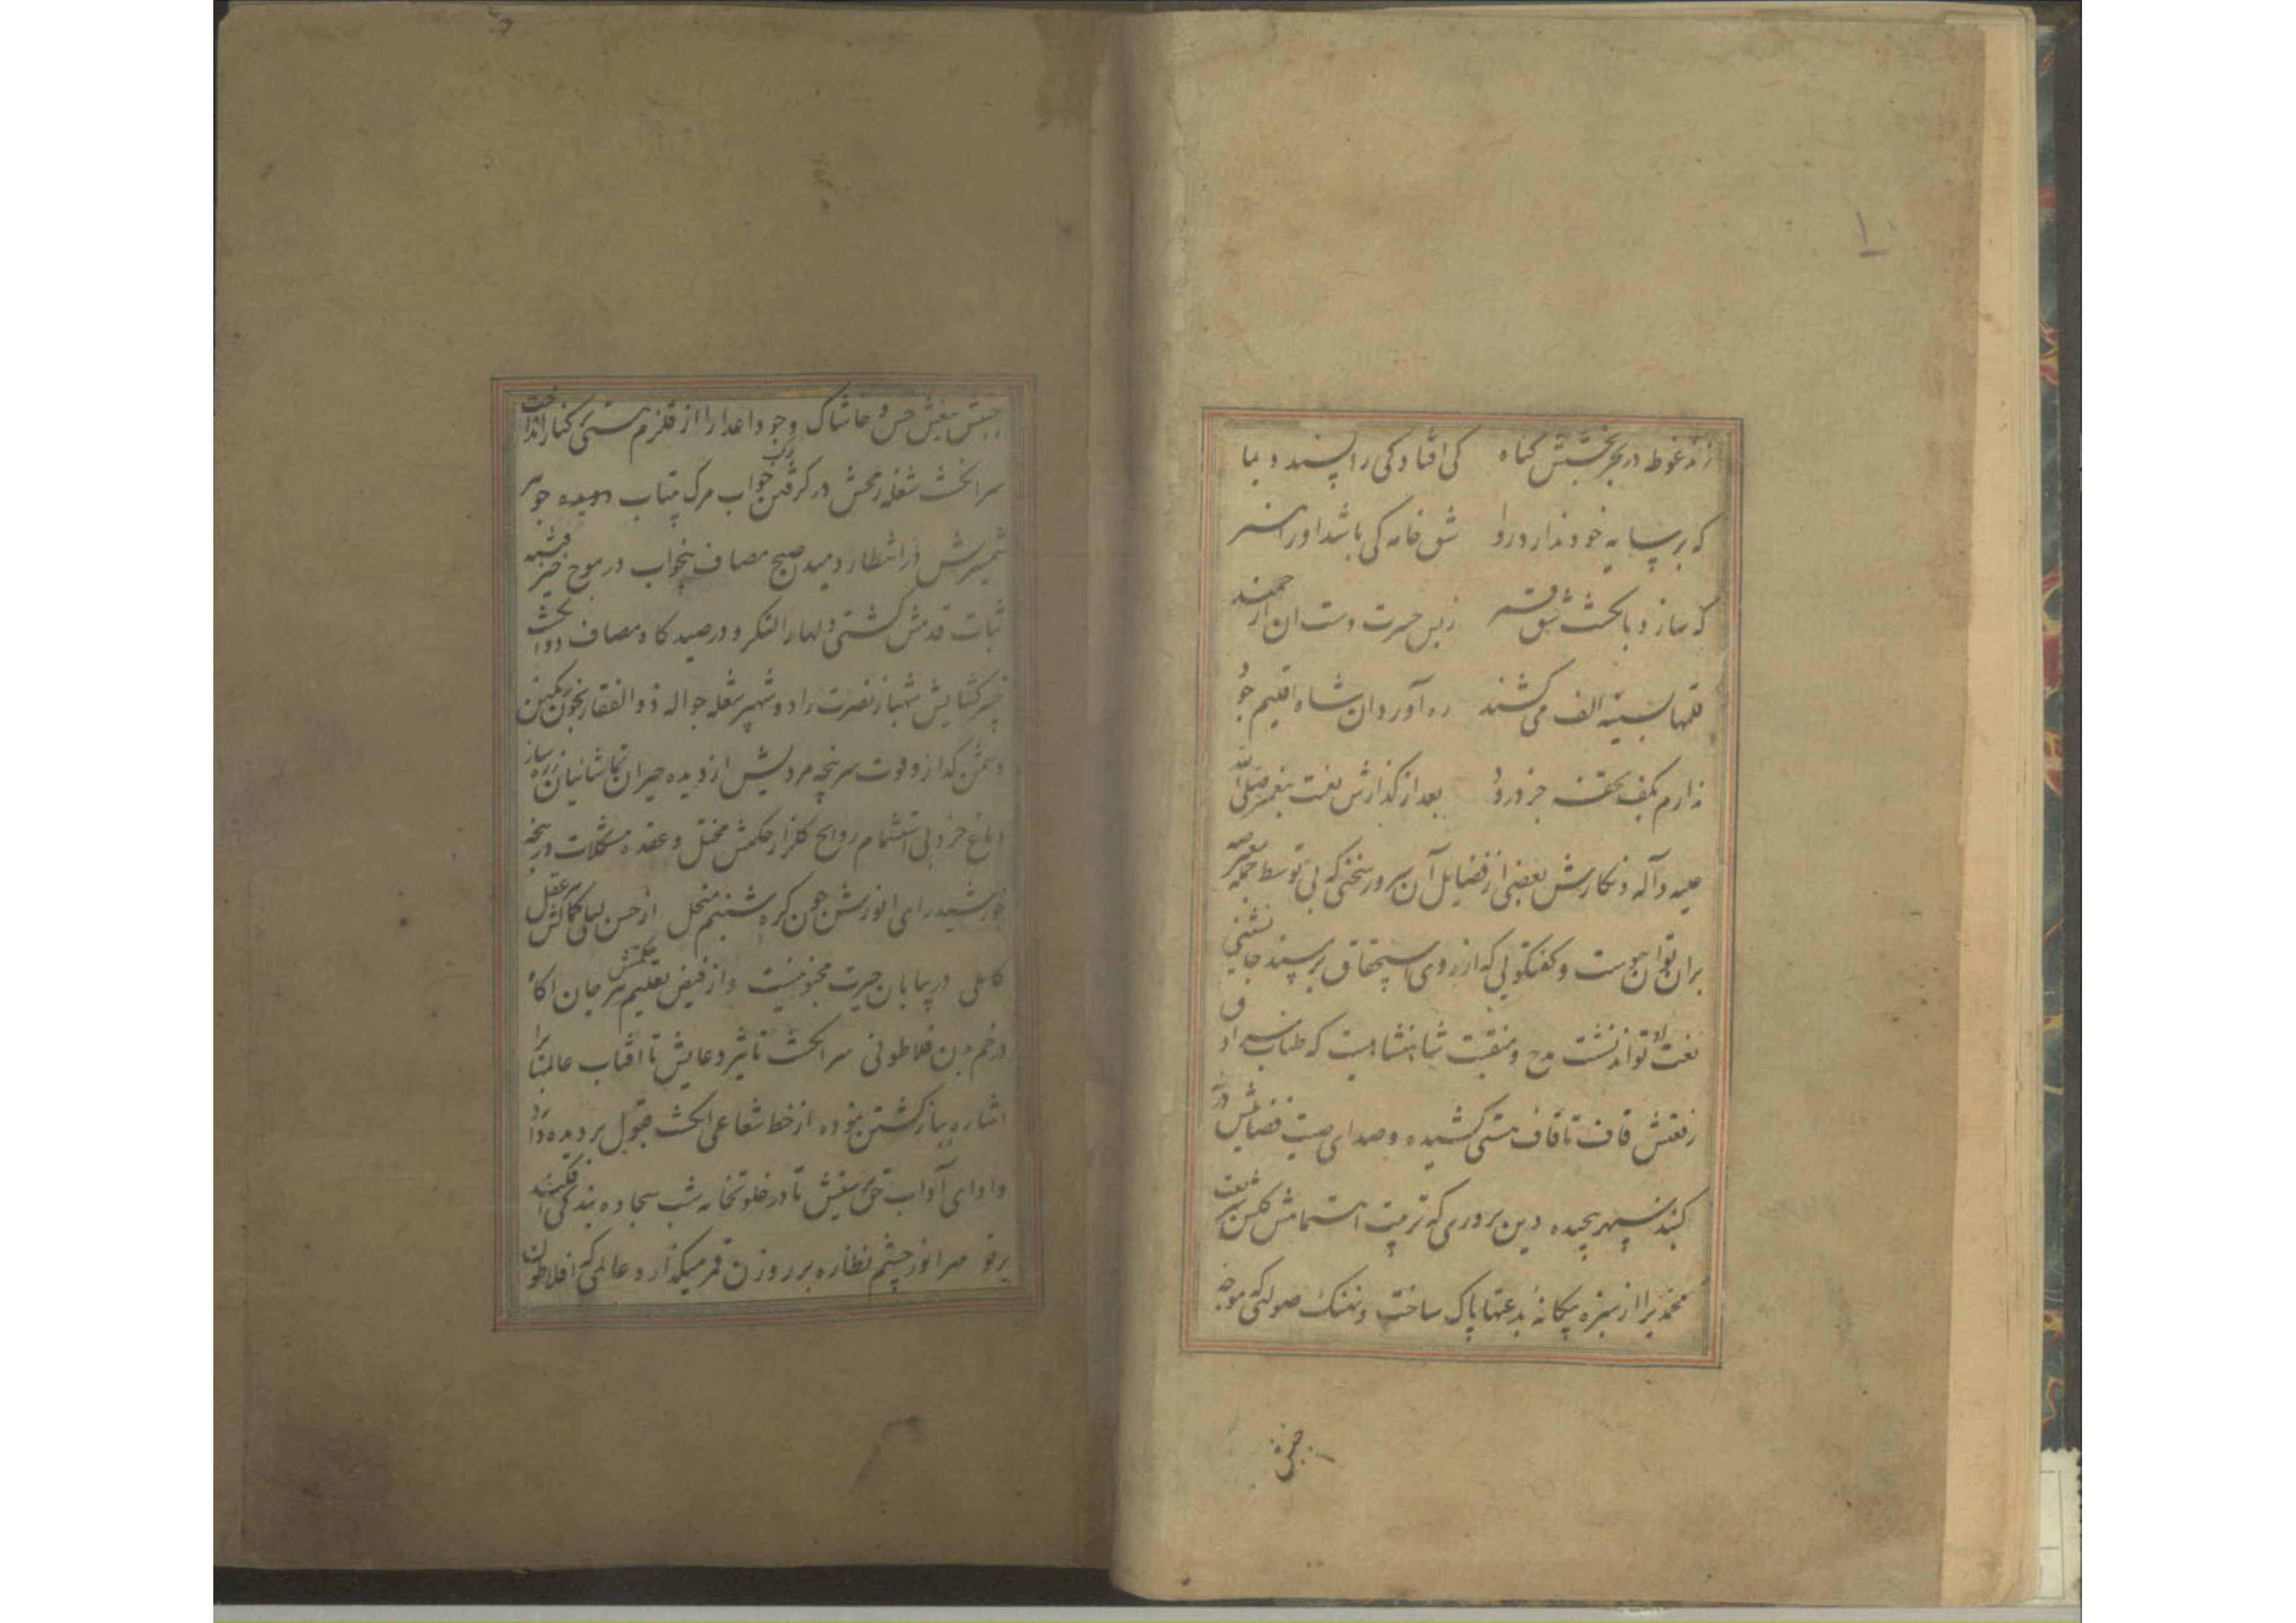 زند غوطه در بحر بخشش گناه کی افتادکی را پسندد بما
که بر سایه خود ندارد روا شق خامه کی باشد او را
که سازد بانکشت شق قمر ز بس حسرت دست ان ارجمند
قلمها بسینه الف می کشند ره آورد ان شاه اقلیم جود
ندارم بکف تحفه جز درود بعد از گذارش نعت پیغمبر صلی الله
علیه وآله و نکارش بعضی از فضایل آن سرور سخنی که بی توسط
بران توان پیوست و کفتکویی که از روی استحقاق بر مسند جانشینی
نعت او تواند نشست مدح و منقبت شاهنشاهیست که طناب
رفعتش قاف تا قاف هستی کشیده و صدای صیت فضایلش در
کنبد سپهر پیچیده دین پروری که تربیت اهتمامش کلشن شریعت
محمدیرا از سبزه بیکانهٔ بدعتها پاک ساخت و نهنک صولتی که موجه
جنبش
۱۰
جنبش تیغش خس و خاشاک وجود اعدا را از قلزم هستی بکنار انداخت
سرانکشت شعله رمحش در کرفتن رک خواب مرک بیتاب و دیده جوهر
شمشیرش در انتظار دمید صبح مصاف بیخواب در موج خیز فتنه
ثبات قدمش کشتی دلها را لنکر و در صیدکاه مصاف دو انکشت
خیبر کشایش شهباز نصرت را دو شهپر شعله جواله ذوالفقار بخون
دشمن کداز و قوت سرپنجه مردیش از دیده حیران تماشائیان
دماغ خرد بی استشمام روایح کلزار حکمش مختل و عقده مشکلات در پنجه
خورشید رای انورش چون کره شبنم منحل از حسن لیلی کمالش هر عقل
کاملی در بیابان حیرت مجنونیست و از فیض تعلیم حکمتش هر جان آکاه
در خم بدن فلاطونی سرانکشت تاثیر دعایش تا افتاب عالمتاب را
اشاره بباز کشتن نموده از خط شعاعی انکشت قبول بر دیده دارد
و ادای آداب حق تا در خلوتخانه شب سجاده بندکی افکند
پرتو مهر انور چشم نظاره بر روزن قمر میکذارد عالمی که افلاطون